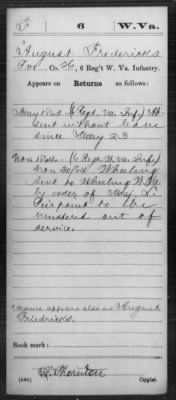 F | 6 | W.Va.
August Fredericks
Pvt., Co. , 6 Reg't W. Va. Infantry.
Appears on Returns as follows:
May 1864 (6 Regt. Va. Inf.) Ab
sent without leave
since May 23
Nov 1864 - (6 Reg. W. Va. Inf.)
Nov 30/64 Wheeling
sent to Wheeling W.Va.
by order of Maj. L.
Pierpoint to be
mustered out of
service.
name appears also as August
Friedricks.
Book mark:
Thornton
Copyist.